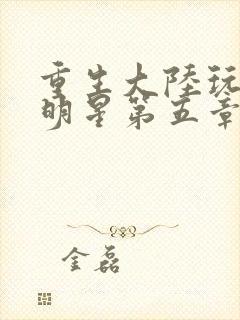 重生大陸玩
明星第五章
金磊